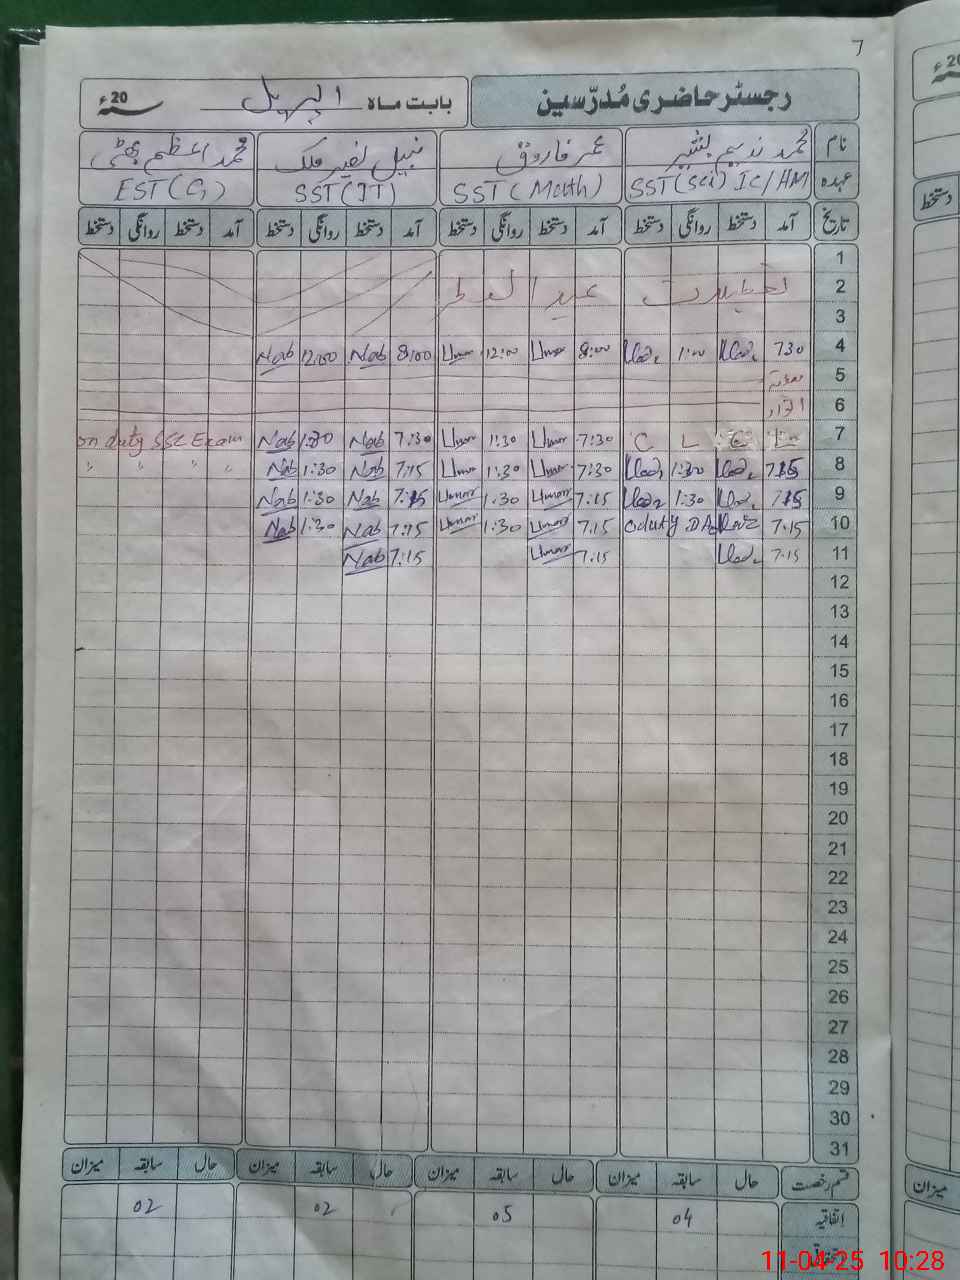 7
رجسٹر حاضری مُدرّسین
بابت ماہ اپریل 20ء
نام محمد ندیم بشیر عمر فاروق نبیل نصیر ملک محمد اعظم بھٹی
عہدہ SST(Sci) IC/HM SST(Math) SST(IT) EST(G)
تاریخ آمد دستخط روانگی دستخط آمد دستخط روانگی دستخط آمد دستخط روانگی دستخط آمد دستخط روانگی دستخط
1
2 تعطیلات عید الفطر
3
4 730 1:00 8:00 Umar 12:00 Umar 8:00 Nab 12:00 Nab
5
6 اتوار
7 C L 7:30 Umar 1:30 Umar 7:30 Nab 1:30 Nab on duty SSC Exam
8 7:15 1:30 7:30 Umar 1:30 Umar 7:15 Nab 1:30 Nab " " " "
9 7:15 1:30 7:15 Umar 1:30 Umar 7:15 Nab 1:30 Nab
10 7:15 7:15 Umar 1:30 Umar 7:15 Nab 1:30 Nab
11 7:15 7:15 Umar 7:15 Nab
12
13
14
15
16
17
18
19
20
21
22
23
24
25
26
27
28
29
30
31
قسم رخصت حال سابقہ میزان حال سابقہ میزان حال سابقہ میزان حال سابقہ میزان
اتفاقیہ 04 05 02 02
11-04-25 10:28